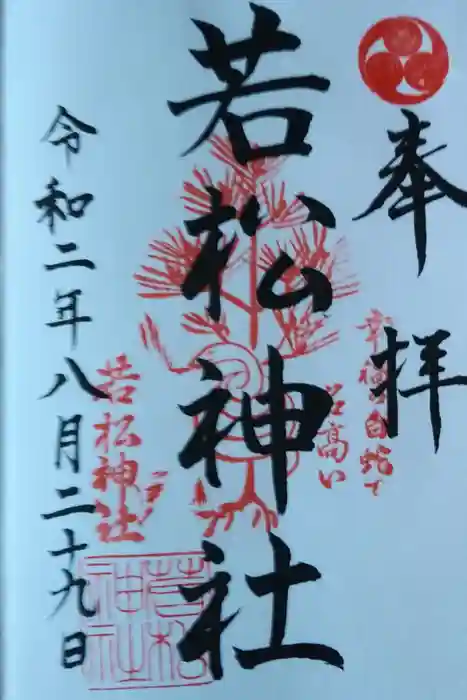 奉拝
幸福白蛇で
名高い
若松神社
若松神社
若松神社
令和二年八月二十九日